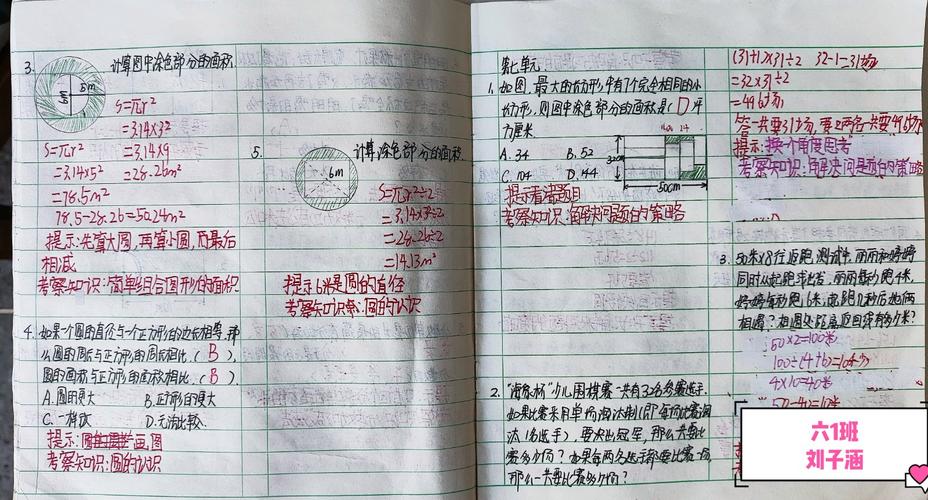 3. 计算图中涂色部分的面积.
5m
S=πr²
=3.14×3²
S=πr² =3.14×9
=3.14×5² =28.26m²
=78.5m²
78.5-28.26=50.24m²
提示:先算大圆,再算小圆,而最后
相减
考察知识:简单组合图形的面积
4. 如果一个圆的直径与一个正方形的边长相等,那
么圆的周长与正方形的周长相比,(B),
圆的面积与正方形的面积相比,(B).
A.圆的更大 B.正方形的更大
C.一样放 D.无法比较.
提示:画图
考察知识:圆的认识
5. 计算涂色部分的面积.
6m
S=πr²÷2
=3.14×3²÷2
=28.26÷2
=14.13m²
提示 6米是圆的直径
考察知识:圆的认识
第七单元
1. 如图,最大的长方形中有7个完全相同的小
长方形,则图中涂色部分的面积是(D)平
方厘米
A. 34 B. 52
C. 104 D. 144
32cm
50cm
提示看清题目
考察知识:解决问题的策略
2. "海象杯"少儿围棋赛一共有32名参赛选手.
如果比赛采用单场淘汰制(即每场比赛淘
汰1名选手),要决出冠军,那么一共要比
赛多少场?如果每两名选手都要比赛一场,
那么一共要比赛多少场?
(31+1)×31÷2 32-1=31场
=32×31÷2
=496场
答:一共要31场,要2两名一共要496场
提示:换个角度思考
考察知识:解决问题的策略
3. 50米×8往返跑测试中,丽丽和婷婷
同时从起跑线出发,丽丽每秒跑4米,
婷婷每秒跑6米,起跑几秒后她俩
相遇?相遇处距离返回线有多少米?
50×2=100米
100÷(4+6)=10秒
4×10=40米
50-40=10米
六1班
刘子涵